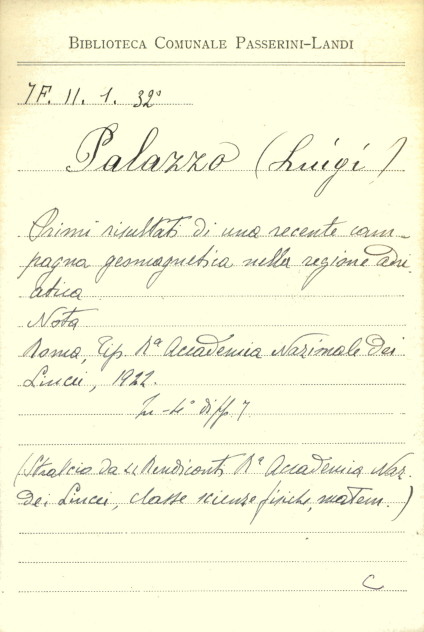 BIBLIOTECA COMUNALE PASSERINI-LANDI
7F. 11. 1. 32°
Palazzo (Luigi)
Primi risultati di una recente cam-
pagna geomagnetica nella regione adri
atica
Nota
Roma, Tip. Rª Accademia Nazionale dei
Lincei, 1922.
In-4° diff. 7
(Stralcio da Rendiconti Rª Accademia Naz.
dei Lincei, classe scienze fisiche, matem.)
C